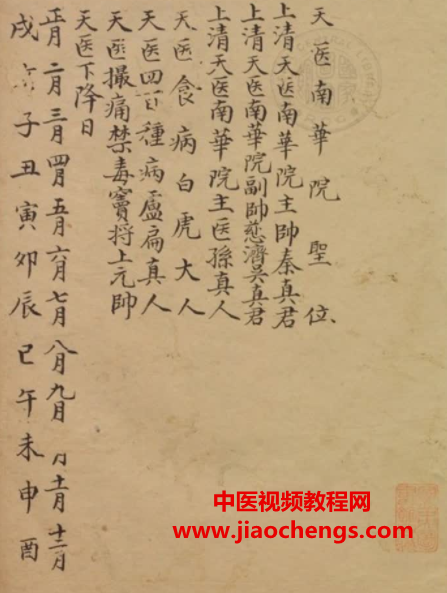 天医南華院聖位
上清天医南華院主帥秦真君
上清天医南華院副帥慈濟吳真君
上清天医南華院主医孫真人
天医食病白虎大人
天医四百種病盧扁真人
天医撮痛禁毒竇将上元帥
天医下降日
正月二月三月四月五月六月七月八月九月 月十一月十二月
戌 子丑寅卯辰巳午未申酉
中医视频教程网
www.jiaochengs.com